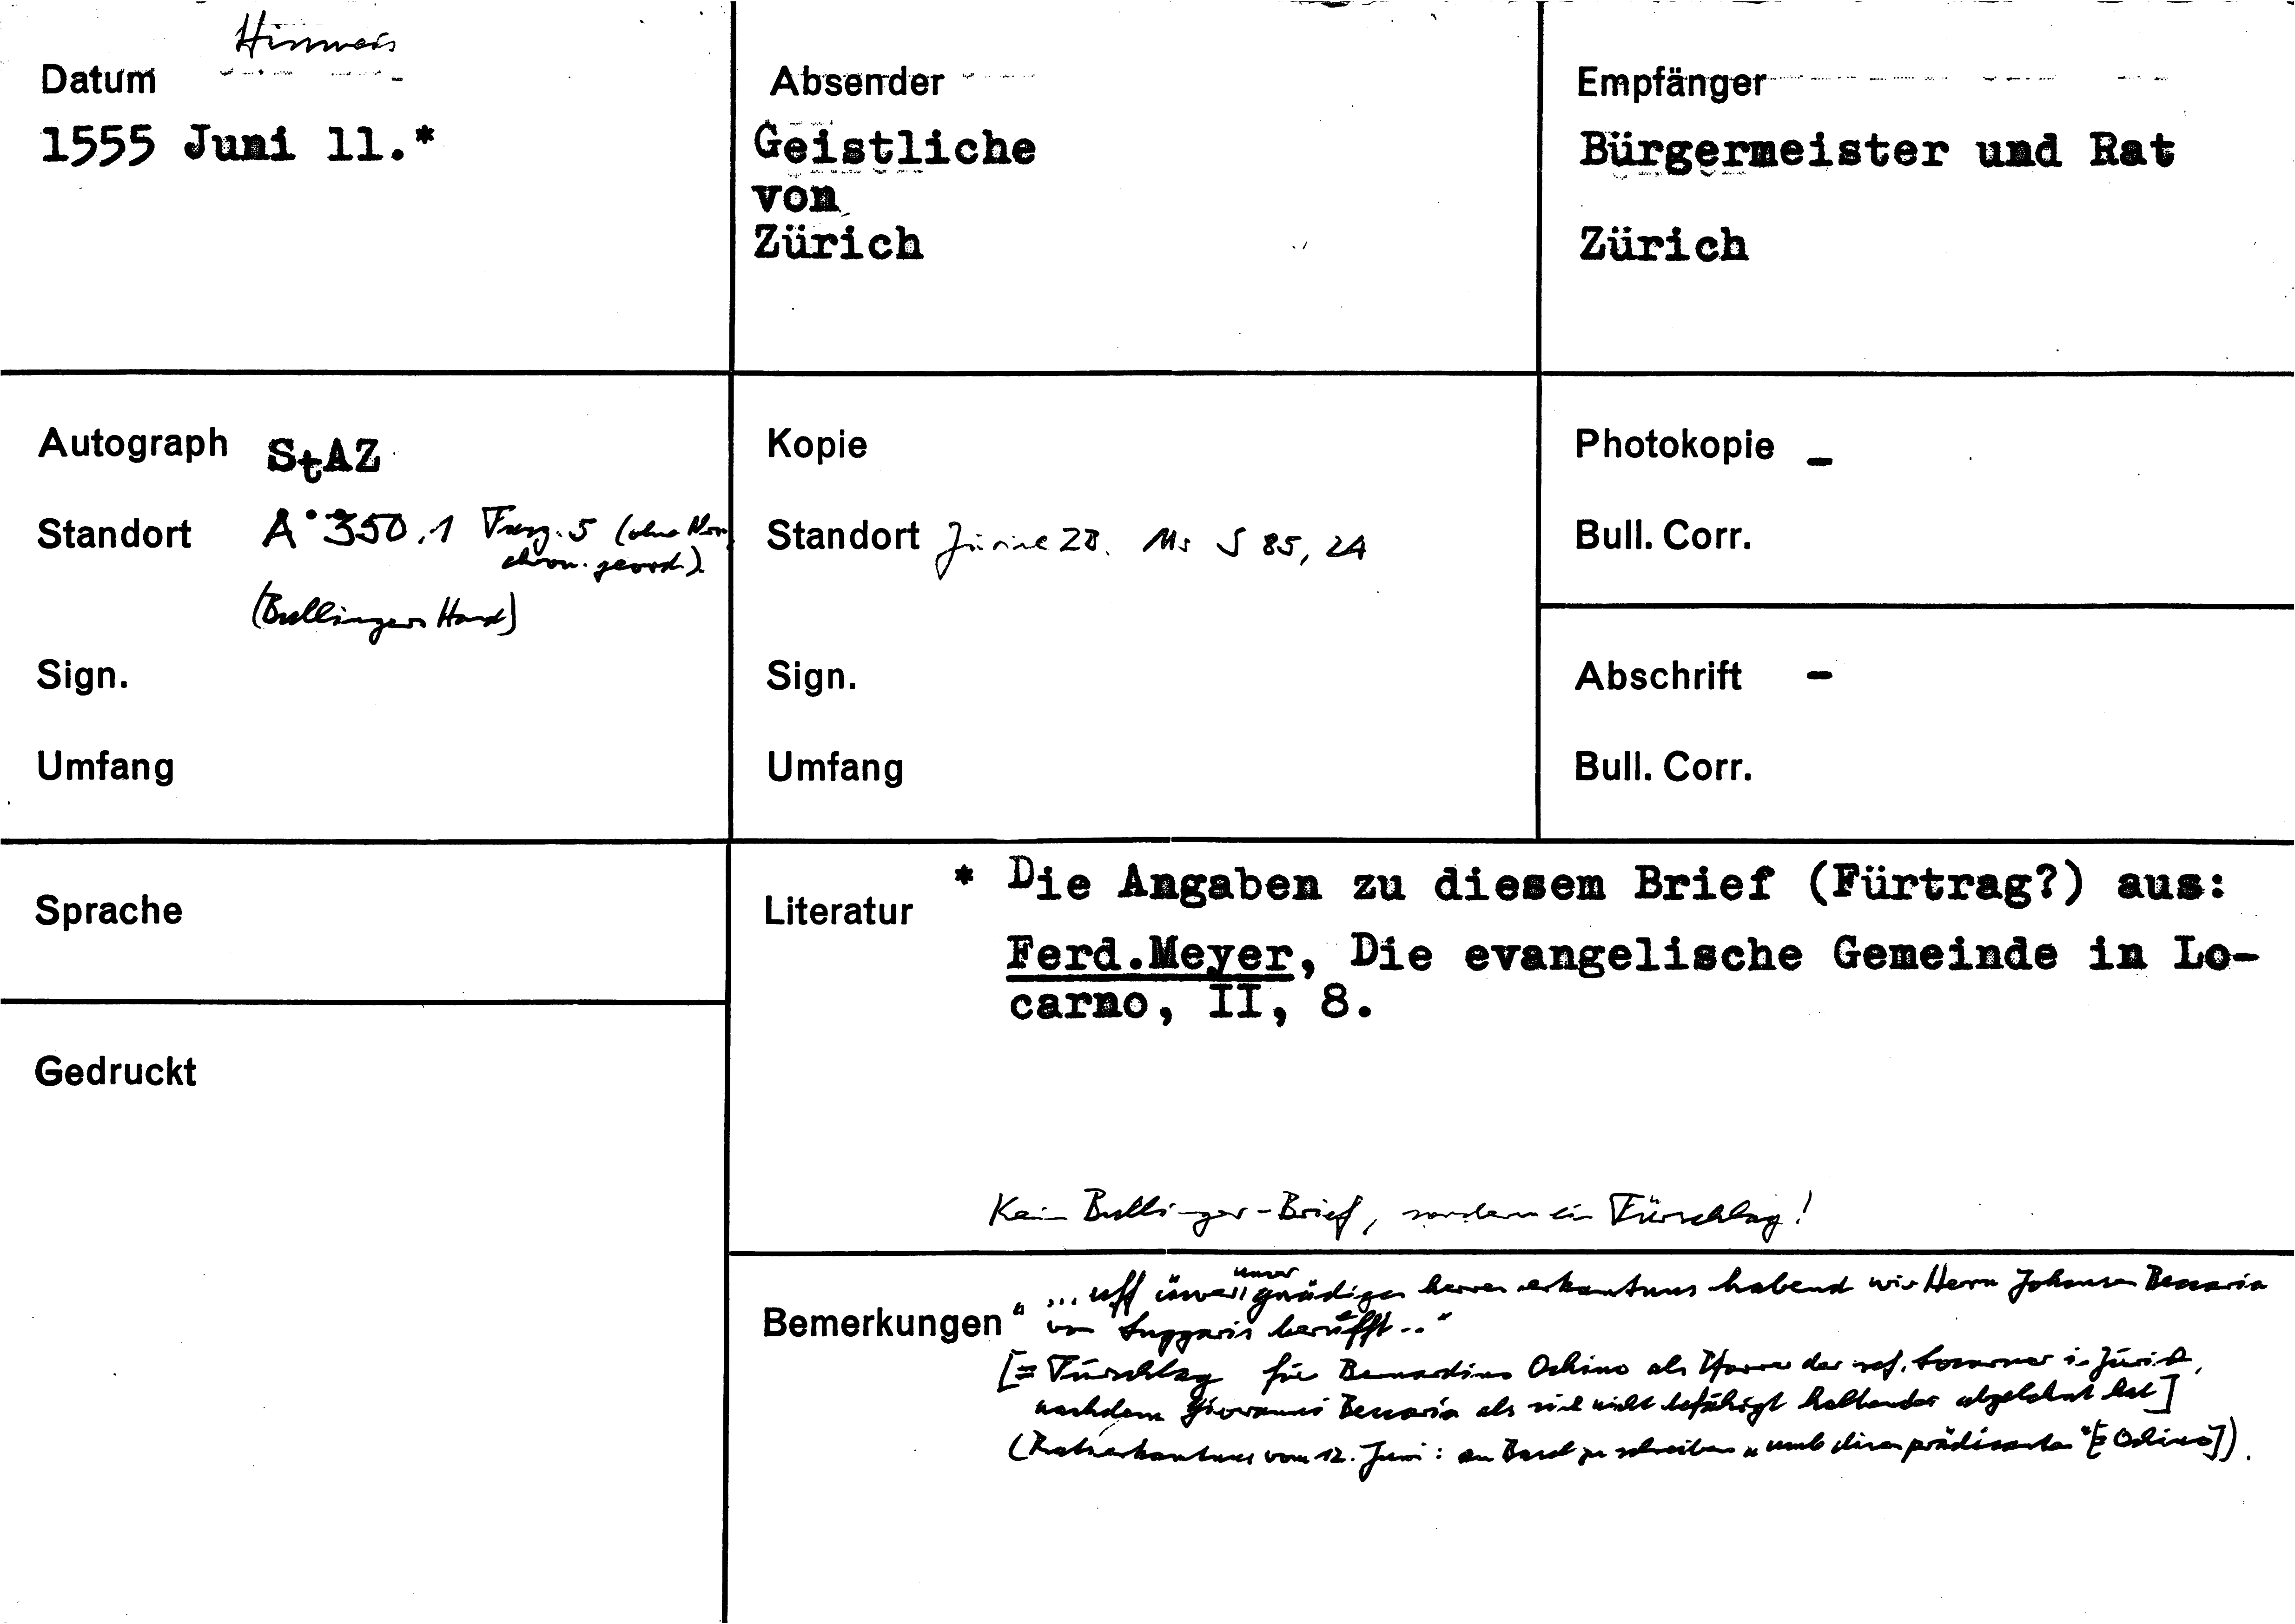 Hinweis
Datum
1555 Juni 11.*
Absender
Geistliche
von
Zürich
Empfänger
Bürgermeister und Rat
Zürich
Autograph StAZ
Standort A 350.1 Fasz. 5 (ohne Nr.,
chron. geord.)
(Bullingers Hand)
Sign.
Umfang
Kopie
Standort Zürich ZB. Ms S 85, 24
Sign.
Umfang
Photokopie –
Bull. Corr.
Abschrift –
Bull. Corr.
Sprache
Gedruckt
Literatur
* Die Angaben zu diesem Brief (Fürtrag?) aus:
Ferd.Meyer, Die evangelische Gemeinde in Lo-
carno, II, 8.
Kein Bullinger-Brief, sondern ein Fürschlag!
Bemerkungen
unser
"... uff üwer gnädigen herren erkantnus habend wir Herrn Johansen Beccaria
von Luggaris berüfft.."
[= Fürschlag für Bernardino Ochino als Pfarrer der ref. Locarner in Zürich,
nachdem Giovanni Beccaria als sich nicht befähigt haltender abgelehnt hat]
(Ratserkantnus vom 12. Juni: an Basel zu schreiben "umb disen prädicanten" [= Ochino]).